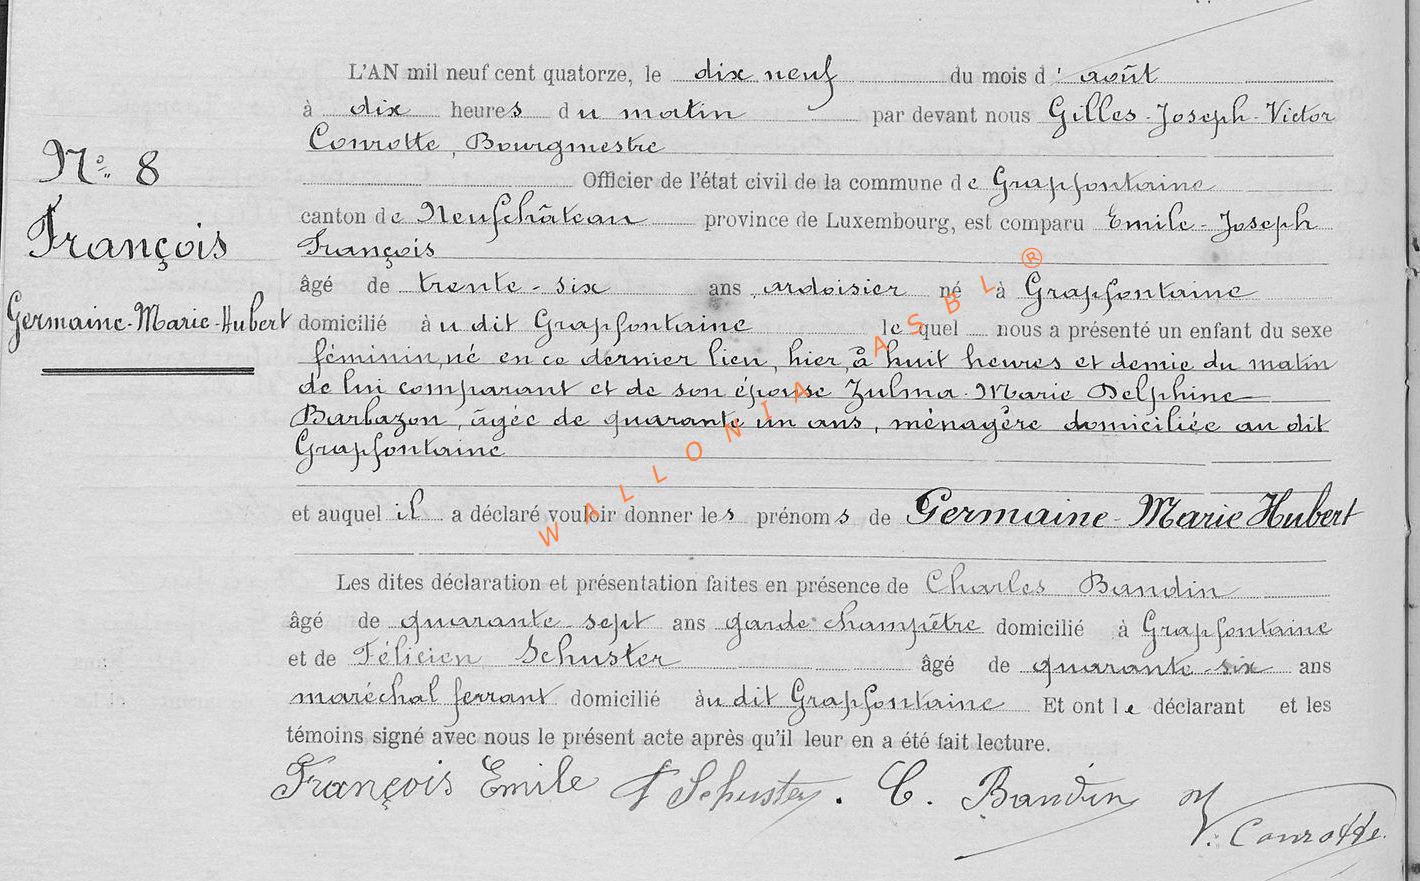 L'AN mil neuf cent quatorze, le dix neuf du mois d' août
à dix heures du matin par devant nous Gilles-Joseph-Victor
Conrotte, Bourgmestre
Officier de l'état civil de la commune de Grapfontaine
N° 8
canton de Neufchâteau province de Luxembourg, est comparu Emile-Joseph
François
François
âgé de trente-six ans ardoisier né à Grapfontaine
Germaine-Marie-Hubert
domicilié au dit Grapfontaine lequel nous a présenté un enfant du sexe
féminin, né en ce dernier lieu, hier, à huit heures et demie du matin
de lui comparant et de son épouse Zulma-Marie Delphine
Barbazon, âgée de quarante un ans, ménagère domiciliée au dit
Grapfontaine
et auquel il a déclaré vouloir donner les prénoms de Germaine-Marie Hubert
Les dites déclaration et présentation faites en présence de Charles Baudin
âgé de quarante sept ans garde-champêtre domicilié à Grapfontaine
et de Félicien Schuster âgé de quarante-six ans
maréchal ferrant domicilié au dit Grapfontaine Et ont le déclarant et les
témoins signé avec nous le présent acte après qu'il leur en a été fait lecture.
François Emile F Schuster. C. Baudin
V. Conrotte
WALLONIA ASBL ®